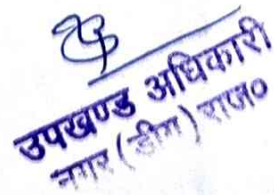 उपखण्ड अधिकारी
नगर (डीग) राज०